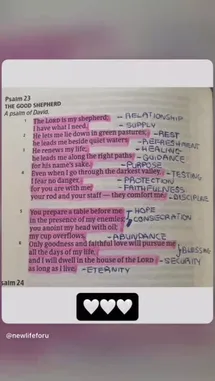 Psalm 23
THE GOOD SHEPHERD
A psalm of David.
1 The LORD is my shepherd; - RELATIONSHIP
I have what I need. - SUPPLY
2 He lets me lie down in green pastures; - REST
he leads me beside quiet waters. - REFRESHMENT
3 He renews my life; - HEALING
he leads me along the right paths - GUIDANCE
for his name's sake. - PURPOSE
4 Even when I go through the darkest valley, - TESTING
I fear no danger, - PROTECTION
for you are with me; - FAITHFULNESS
your rod and your staff — they comfort me. - DISCIPLINE
5 You prepare a table before me HOPE
in the presence of my enemies; CONSECRATION
you anoint my head with oil;
my cup overflows. - ABUNDANCE
6 Only goodness and faithful love will pursue me
all the days of my life, BLESSING
and I will dwell in the house of the LORD - SECURITY
as long as I live. - ETERNITY
salm 24
🤍🤍🤍
@newlifeforu